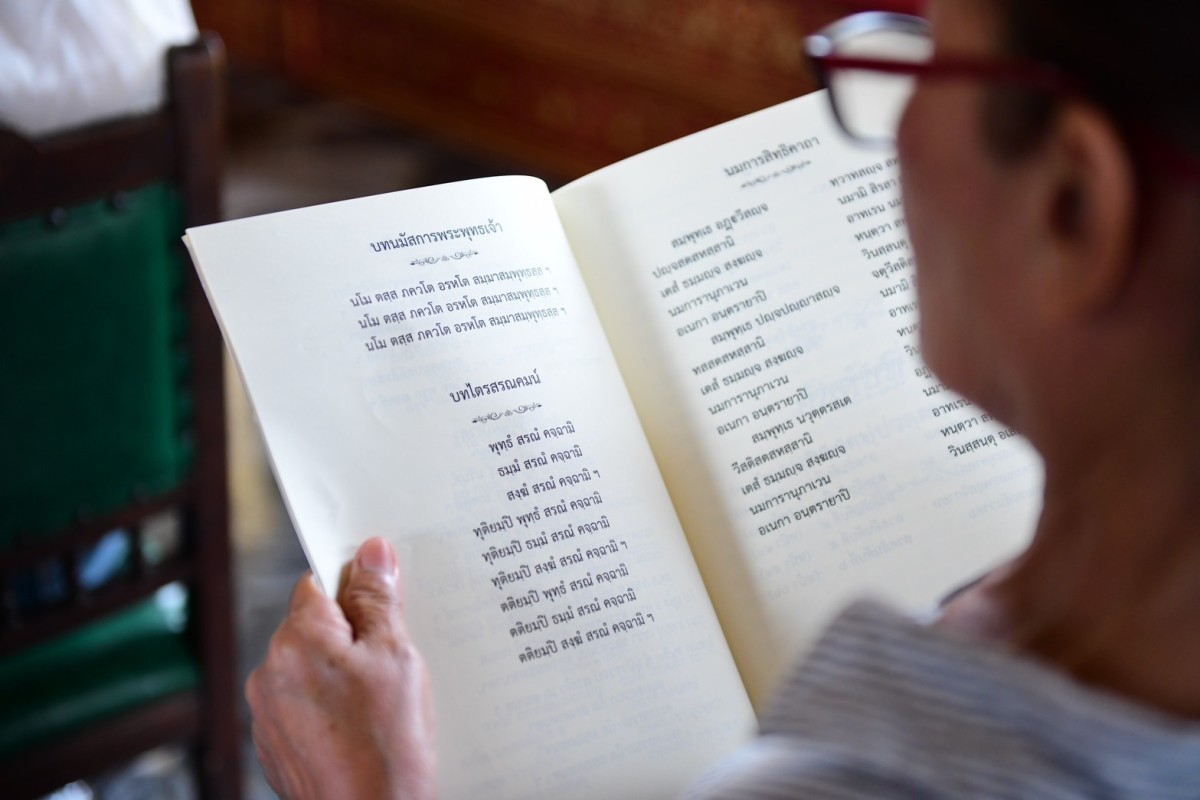 บทนมัสการพระพุทธเจ้า
นโม ตสฺส ภควโต อรหโต สมฺมาสมฺพุทฺธสฺส ฯ
นโม ตสฺส ภควโต อรหโต สมฺมาสมฺพุทฺธสฺส ฯ
นโม ตสฺส ภควโต อรหโต สมฺมาสมฺพุทฺธสฺส ฯ
บทไตรสรณคมน์
พุทฺธํ สรณํ คจฺฉามิ
ธมฺมํ สรณํ คจฺฉามิ
สงฺฆํ สรณํ คจฺฉามิ ฯ
ทุติยมฺปิ พุทฺธํ สรณํ คจฺฉามิ
ทุติยมฺปิ ธมฺมํ สรณํ คจฺฉามิ
ทุติยมฺปิ สงฺฆํ สรณํ คจฺฉามิ ฯ
ตติยมฺปิ พุทฺธํ สรณํ คจฺฉามิ
ตติยมฺปิ ธมฺมํ สรณํ คจฺฉามิ
ตติยมฺปิ สงฺฆํ สรณํ คจฺฉามิ ฯ
นมการสิทธิคาถา
สมฺพุทฺเธ อฏฺฐวีสญฺจ
ปญฺจสตสหสฺสานิ
เตสํ ธมฺมญฺจ สงฺฆญฺจ
นมการานุภาเวน
อเนกา อนฺตรายาปิ
สมฺพุทฺเธ ปญฺจปญฺญาสญฺจ
ทสสตสหสฺสานิ
เตสํ ธมฺมญฺจ สงฺฆญฺจ
นมการานุภาเวน
อเนกา อนฺตรายาปิ
สมฺพุทฺเธ นวุตฺตรสเต
วีสติสตสหสฺสานิ
เตสํ ธมฺมญฺจ สงฺฆญฺจ
นมการานุภาเวน
อเนกา อนฺตรายาปิ
ทฺวาทสญฺจ
นมามิ สิรสา
อาทเรน
หนฺตฺวา
วินสฺสนฺตุ
นมามิ
อาทเรน
หนฺตฺวา
วินสฺสนฺตุ